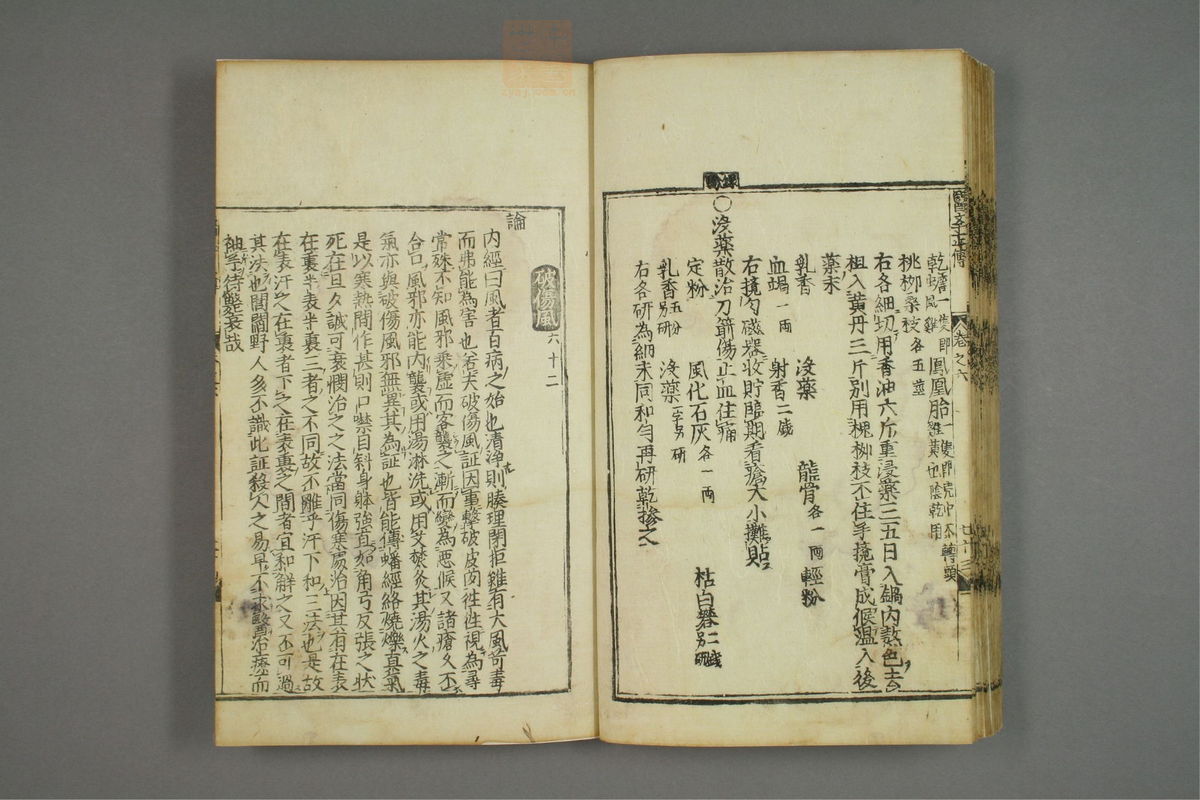 醫學正傳
卷之六
乾蟾一隻即風雞 鳳凰胎一隻即
桃柳桑枝各五莖
右各細切用香油六斤重浸藥三五日入鍋內熬色去
柤入黃丹三斤別用槐柳枝不住手攪膏成候溫入後
藥末
乳香 沒藥 龍骨各一兩 輕粉
血蝎一兩 射香二錢
右攪勻磁器收貯臨期看瘡大小攤貼
○沒藥散治刀箭傷止血住痛
定粉 風化石灰各一兩 枯白礬二錢別研
乳香五分別研 沒藥一字另研
右各研為細末同和勻再研乾摻之
破傷風 六十二
論
內經曰風者百病之始也清淨則腠理閉拒雖有大風苛毒
而弗能為害也若夫破傷風証因重擊破皮肉徃徃視為尋
常殊不知風邪乘虛而客襲之漸而變為惡候又諸瘡久不
合口風邪亦能內襲或用湯淋洗或用艾焚灸其湯火之毒
氣亦與破傷風邪無異其為証也皆能傳播經絡燒爍真氣
是以寒熱間作甚則口噤目斜身躰強直如角弓反張之狀
死在旦夕誠可哀憫治之之法當同傷寒處治因其有在表
在裏半表半裏三者之不同故不離乎汗下和三法也是故
在表汗之在裏者下之在表裏之間者宜和解之又不可過
其法也閭閻野人多不識此証殺人之易早不求醫治療而
待斃哀哉